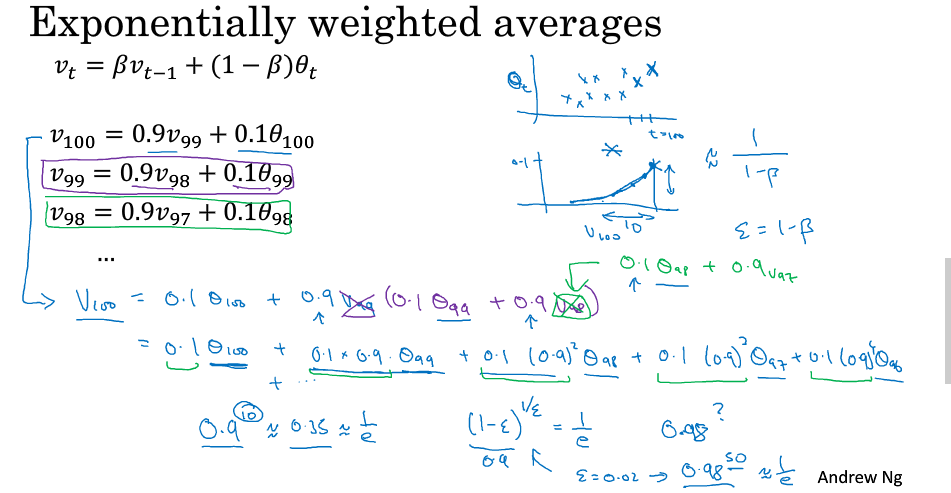 Exponentially weighted averages
v_t = βv_{t−1} + (1 − β)θ_t
θ_t
t=100
v_100 = 0.9v_99 + 0.1θ_100
0.1
≈ 1/(1-β)
v_99 = 0.9v_98 + 0.1θ_99
v_98 = 0.9v_97 + 0.1θ_98
V_100 10
ε = 1-β
...
0.1 θ_98 + 0.9 v_97
V_100 = 0.1 θ_100 + 0.9 v_99 (0.1 θ_99 + 0.9 v_98)
= 0.1 θ_100 + 0.1 × 0.9 · θ_99 + 0.1 (0.9)² θ_98 + 0.1 (0.9)³ θ_97 + 0.1 (0.9)⁴ θ_96
+ ...
0.9^10 ≈ 0.35 ≈ 1/e
(1-ε)^{1/ε} = 1/e
0.98 ?
0.9
ε = 0.02 → 0.98^50 ≈ 1/e
Andrew Ng